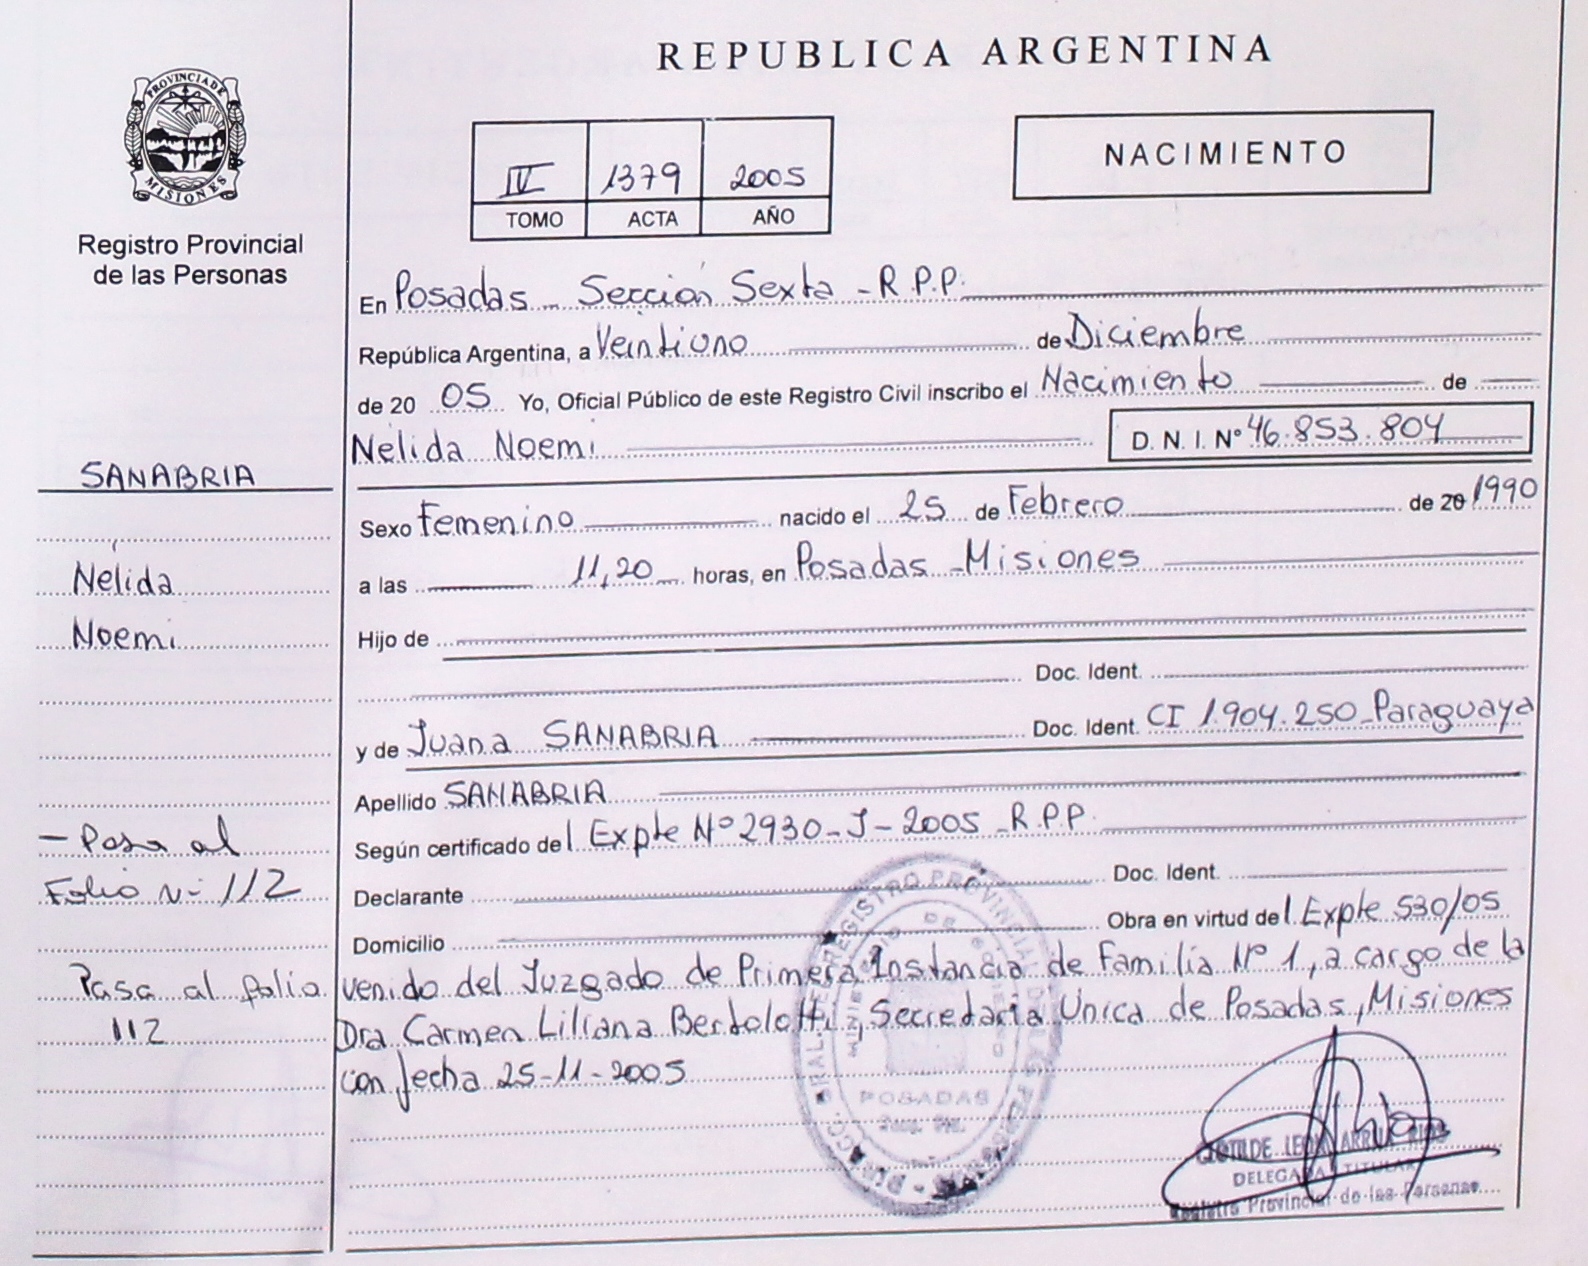 REPUBLICA ARGENTINA
PROVINCIA DE
MISIONES
Registro Provincial
de las Personas
IV 1379 2005
TOMO ACTA AÑO
NACIMIENTO
En Posadas - Sección Sexta - R.P.P.
República Argentina, a Veintiuno de Diciembre
de 20 05 Yo, Oficial Público de este Registro Civil inscribo el Nacimiento de
Nélida Noemi D. N. I. Nº 46.853.804
SANABRIA
Sexo Femenino nacido el 25 de Febrero de 20 1990
Nélida
a las 11,20 horas, en Posadas - Misiones
Noemi
Hijo de
Doc. Ident.
y de Juana SANABRIA Doc. Ident. CI 1.904.250 - Paraguaya
Apellido SANABRIA
- Pasa al
Según certificado del Expte Nº 2930 - J - 2005 - R.P.P.
Folio Nº 112
Declarante Doc. Ident.
Domicilio Obra en virtud del Expte 530/05
Pasa al folio
112
venido del Juzgado de Primera Instancia de Familia Nº 1, a cargo de la
Dra Carmen Liliana Bertolotti, Secretaria Unica de Posadas, Misiones
con fecha 25-11-2005
REGISTRO PROVINCIAL DE LAS PERSONAS
MINISTERIO DE GOBIERNO
POSADAS
CLOTILDE LEONA ARRUA RIOS
DELEGADA TITULAR
Registro Provincial de las Personas